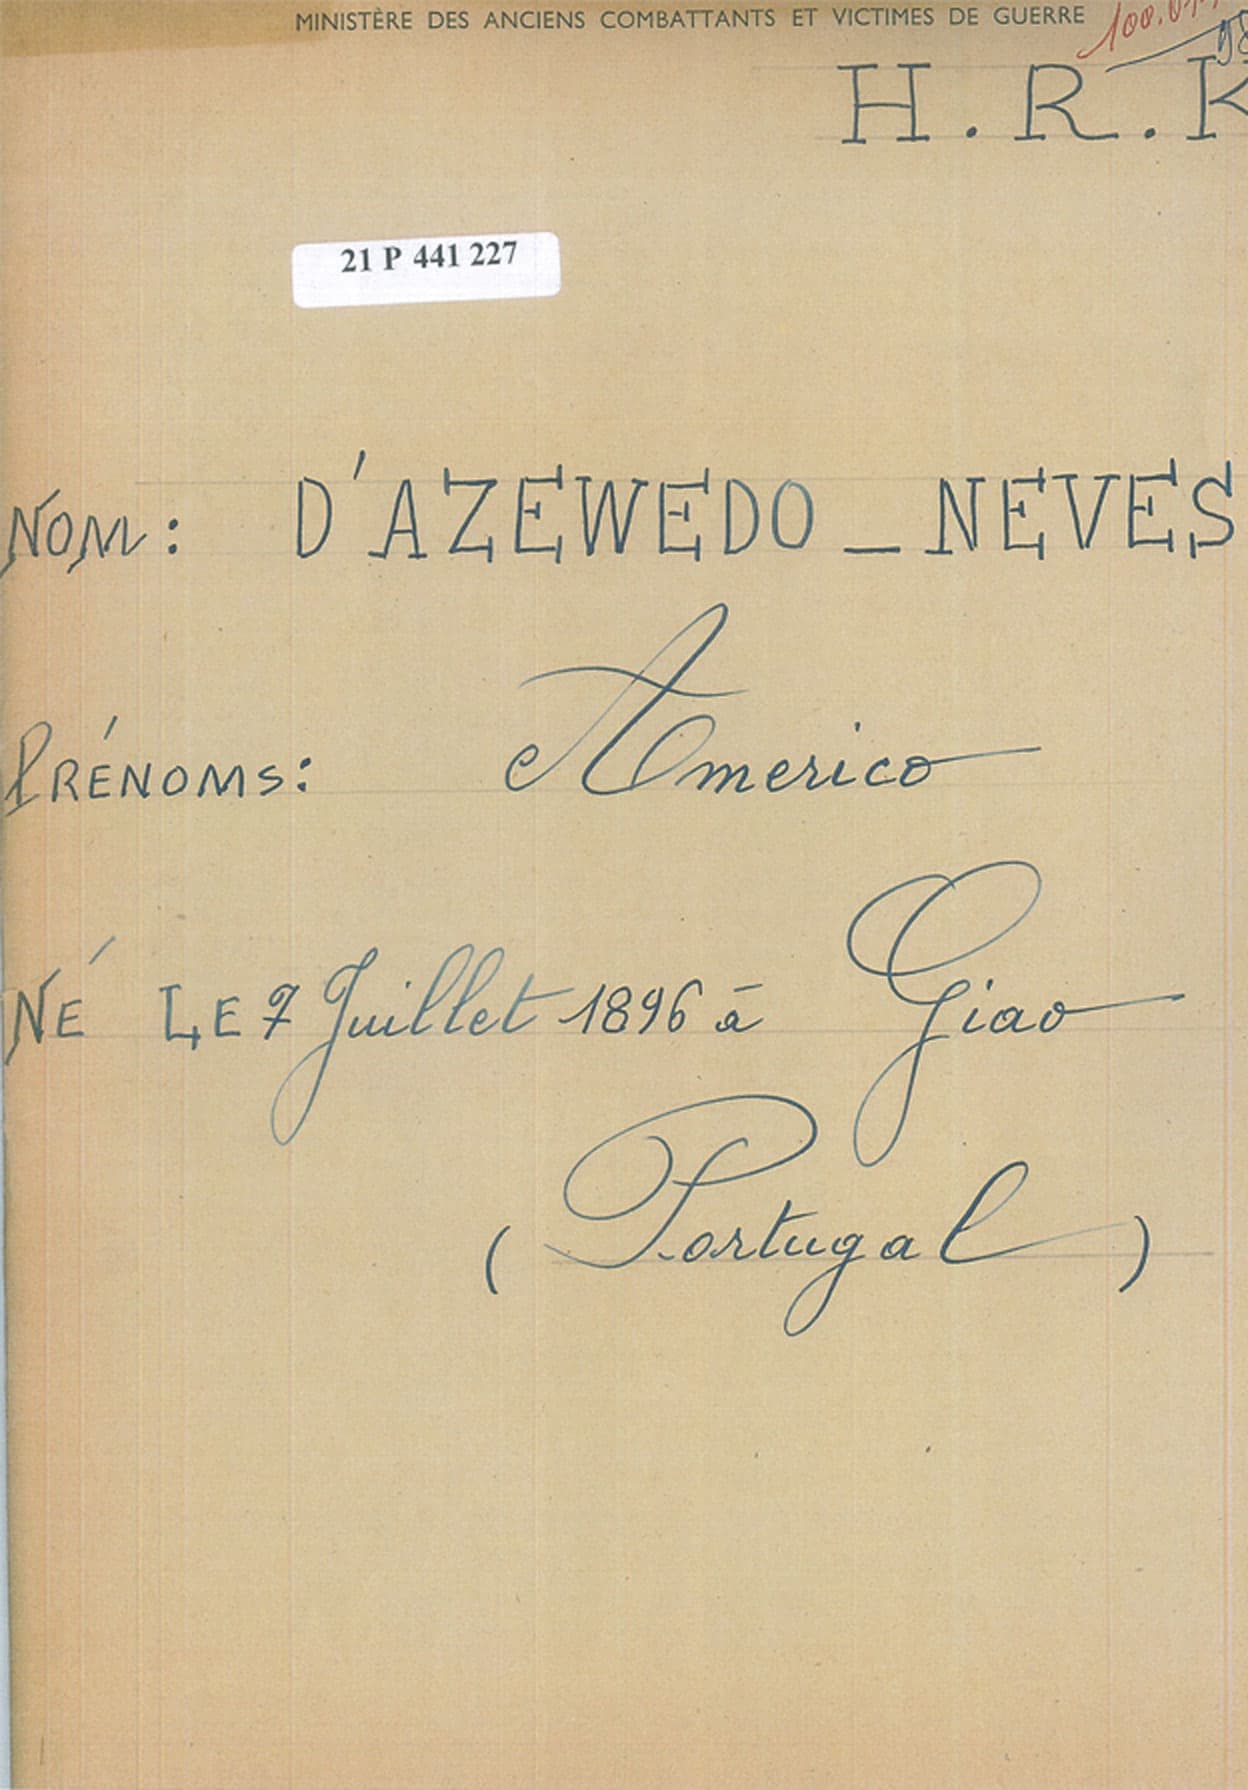 MINISTÈRE DES ANCIENS COMBATTANTS ET VICTIMES DE GUERRE
H.R.
21 P 441 227
NOM: D'AZEWEDO_NEVES
PRÉNOMS: Americo
NÉ LE 7 Juillet 1896 à Giao
(Portugal)